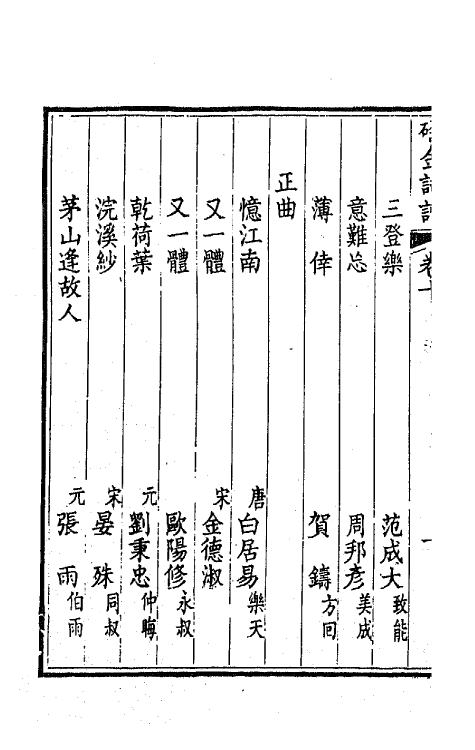 碎金詞譜 卷十
三登樂 范成大 致能
意難忘 周邦彥 美成
薄倖 賀鑄 方回
正曲
憶江南 唐 白居易 樂天
又一體 宋 金德淑
又一體 歐陽修 永叔
乾荷葉 元 劉秉忠 仲晦
浣溪紗 宋 晏殊 同叔
茅山逢故人 元 張雨 伯雨